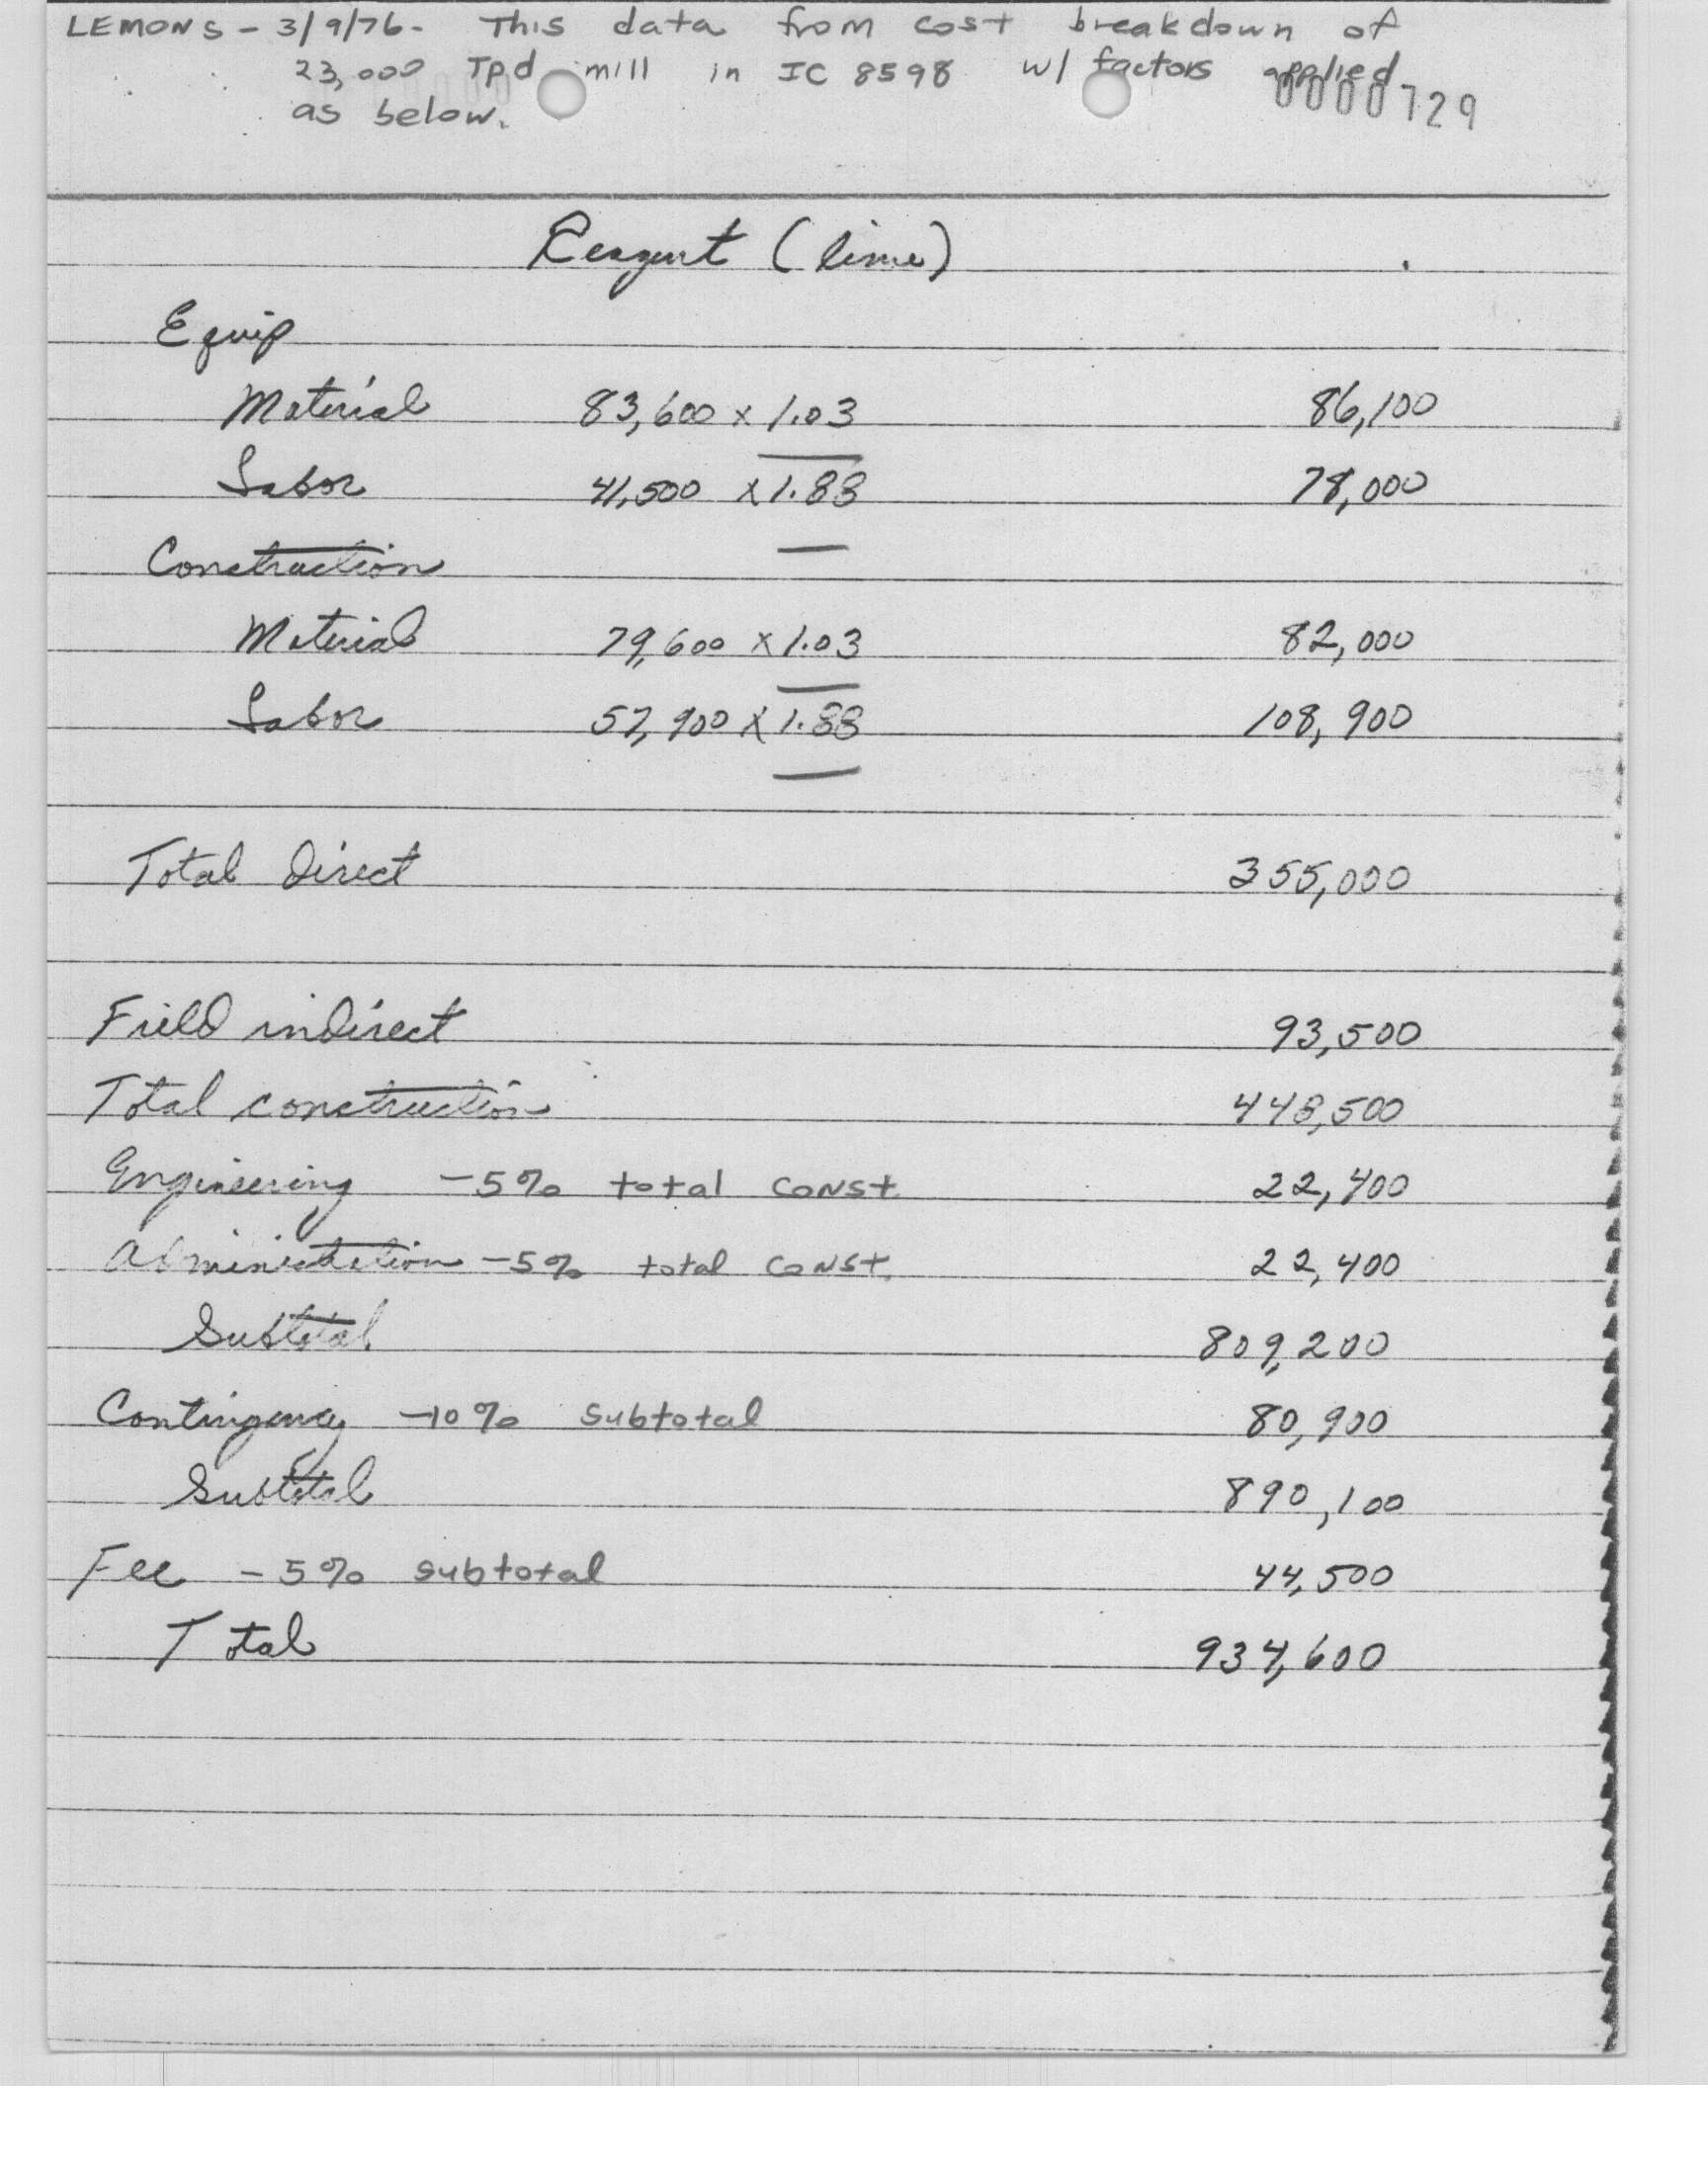 LEMONS - 3/9/76 - This data from cost breakdown of
23,000 Tpd mill in IC 8598 w/ factors applied
as below.
0000729
Reagent (lime)
Equip
Material 83,600 x 1.03 86,100
Labor 41,500 x 1.88 78,000
Construction
Material 79,600 x 1.03 82,000
Labor 57,900 x 1.88 108,900
Total direct 355,000
Field indirect 93,500
Total construction 448,500
Engineering - 5% total const 22,400
Administration - 5% total const. 22,400
Subtotal 809,200
Contingency - 10% subtotal 80,900
Subtotal 890,100
Fee - 5% subtotal 44,500
Total 934,600